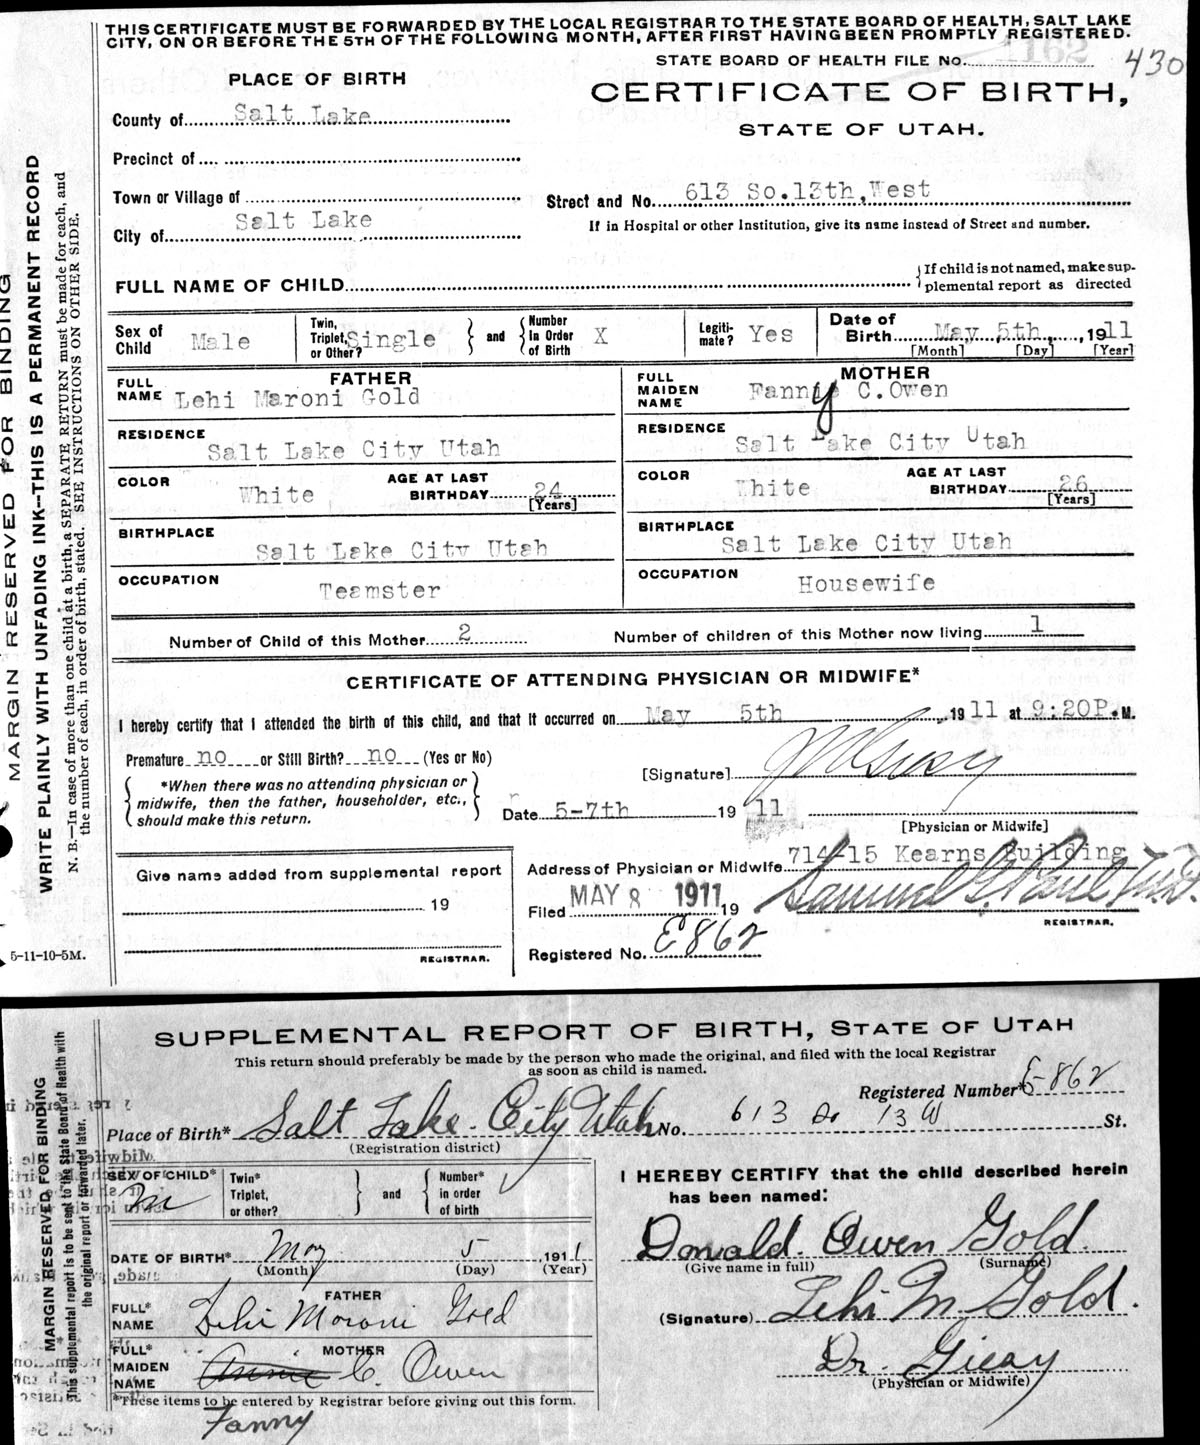 THIS CERTIFICATE MUST BE FORWARDED BY THE LOCAL REGISTRAR TO THE STATE BOARD OF HEALTH, SALT LAKE
CITY, ON OR BEFORE THE 5TH OF THE FOLLOWING MONTH, AFTER FIRST HAVING BEEN PROMPTLY REGISTERED.
STATE BOARD OF HEALTH FILE No. 1162 430
PLACE OF BIRTH
CERTIFICATE OF BIRTH,
STATE OF UTAH.
County of Salt Lake
Precinct of
Town or Village of
Street and No. 613 So.13th,West
City of Salt Lake
If in Hospital or other Institution, give its name instead of Street and number.
FULL NAME OF CHILD
If child is not named, make sup-
plemental report as directed
Sex of Child Male
Twin, Triplet, or Other? Single and Number in Order of Birth X
Legiti-mate? Yes
Date of Birth May 5th, 1911
[Month] [Day] [Year]
FATHER
FULL NAME Lehi Maroni Gold
RESIDENCE Salt Lake City Utah
COLOR White AGE AT LAST BIRTHDAY 24 [Years]
BIRTHPLACE Salt Lake City Utah
OCCUPATION Teamster
MOTHER
FULL MAIDEN NAME Fanny C.Owen
RESIDENCE Salt Lake City Utah
COLOR White AGE AT LAST BIRTHDAY 26 [Years]
BIRTHPLACE Salt Lake City Utah
OCCUPATION Housewife
Number of Child of this Mother 2 Number of children of this Mother now living 1
CERTIFICATE OF ATTENDING PHYSICIAN OR MIDWIFE*
I hereby certify that I attended the birth of this child, and that it occurred on May 5th, 1911 at 9:20P.M.
Premature no or Still Birth? no (Yes or No)
[Signature]
*When there was no attending physician or
midwife, then the father, householder, etc.,
should make this return.
Date 5-7th 19 11
[Physician or Midwife]
Address of Physician or Midwife 714-15 Kearns Building
Give name added from supplemental report
19
REGISTRAR.
Filed MAY 8 1911 19 Samuel G. Paul M.D.
REGISTRAR.
Registered No. E862
5-11-10-5M.
MARGIN RESERVED FOR BINDING
WRITE PLAINLY WITH UNFADING INK—THIS IS A PERMANENT RECORD
N. B.—In case of more than one child at a birth, a SEPARATE RETURN must be made for each, and
the number of each, in order of birth, stated. SEE INSTRUCTIONS ON OTHER SIDE.
SUPPLEMENTAL REPORT OF BIRTH, STATE OF UTAH
This return should preferably be made by the person who made the original, and filed with the local Registrar
as soon as child is named.
Registered Number* E-862
Place of Birth* Salt Lake City Utah No. 613 So 13 W St.
(Registration district)
SEX OF CHILD* M
Twin* Triplet, or other? and Number* in order of birth
DATE OF BIRTH* May 5 1911
(Month) (Day) (Year)
FATHER
FULL* NAME Lehi Moroni Gold
MOTHER
FULL* MAIDEN NAME Annie C. Owen
*These items to be entered by Registrar before giving out this form.
Fanny
I HEREBY CERTIFY that the child described herein
has been named:
Donald Owen Gold
(Give name in full) (Surname)
(Signature) Lehi M Gold.
Dr.
(Physician or Midwife)
MARGIN RESERVED FOR BINDING
This supplemental report is to be sent to the State Board of Health with
the original report or forwarded later.